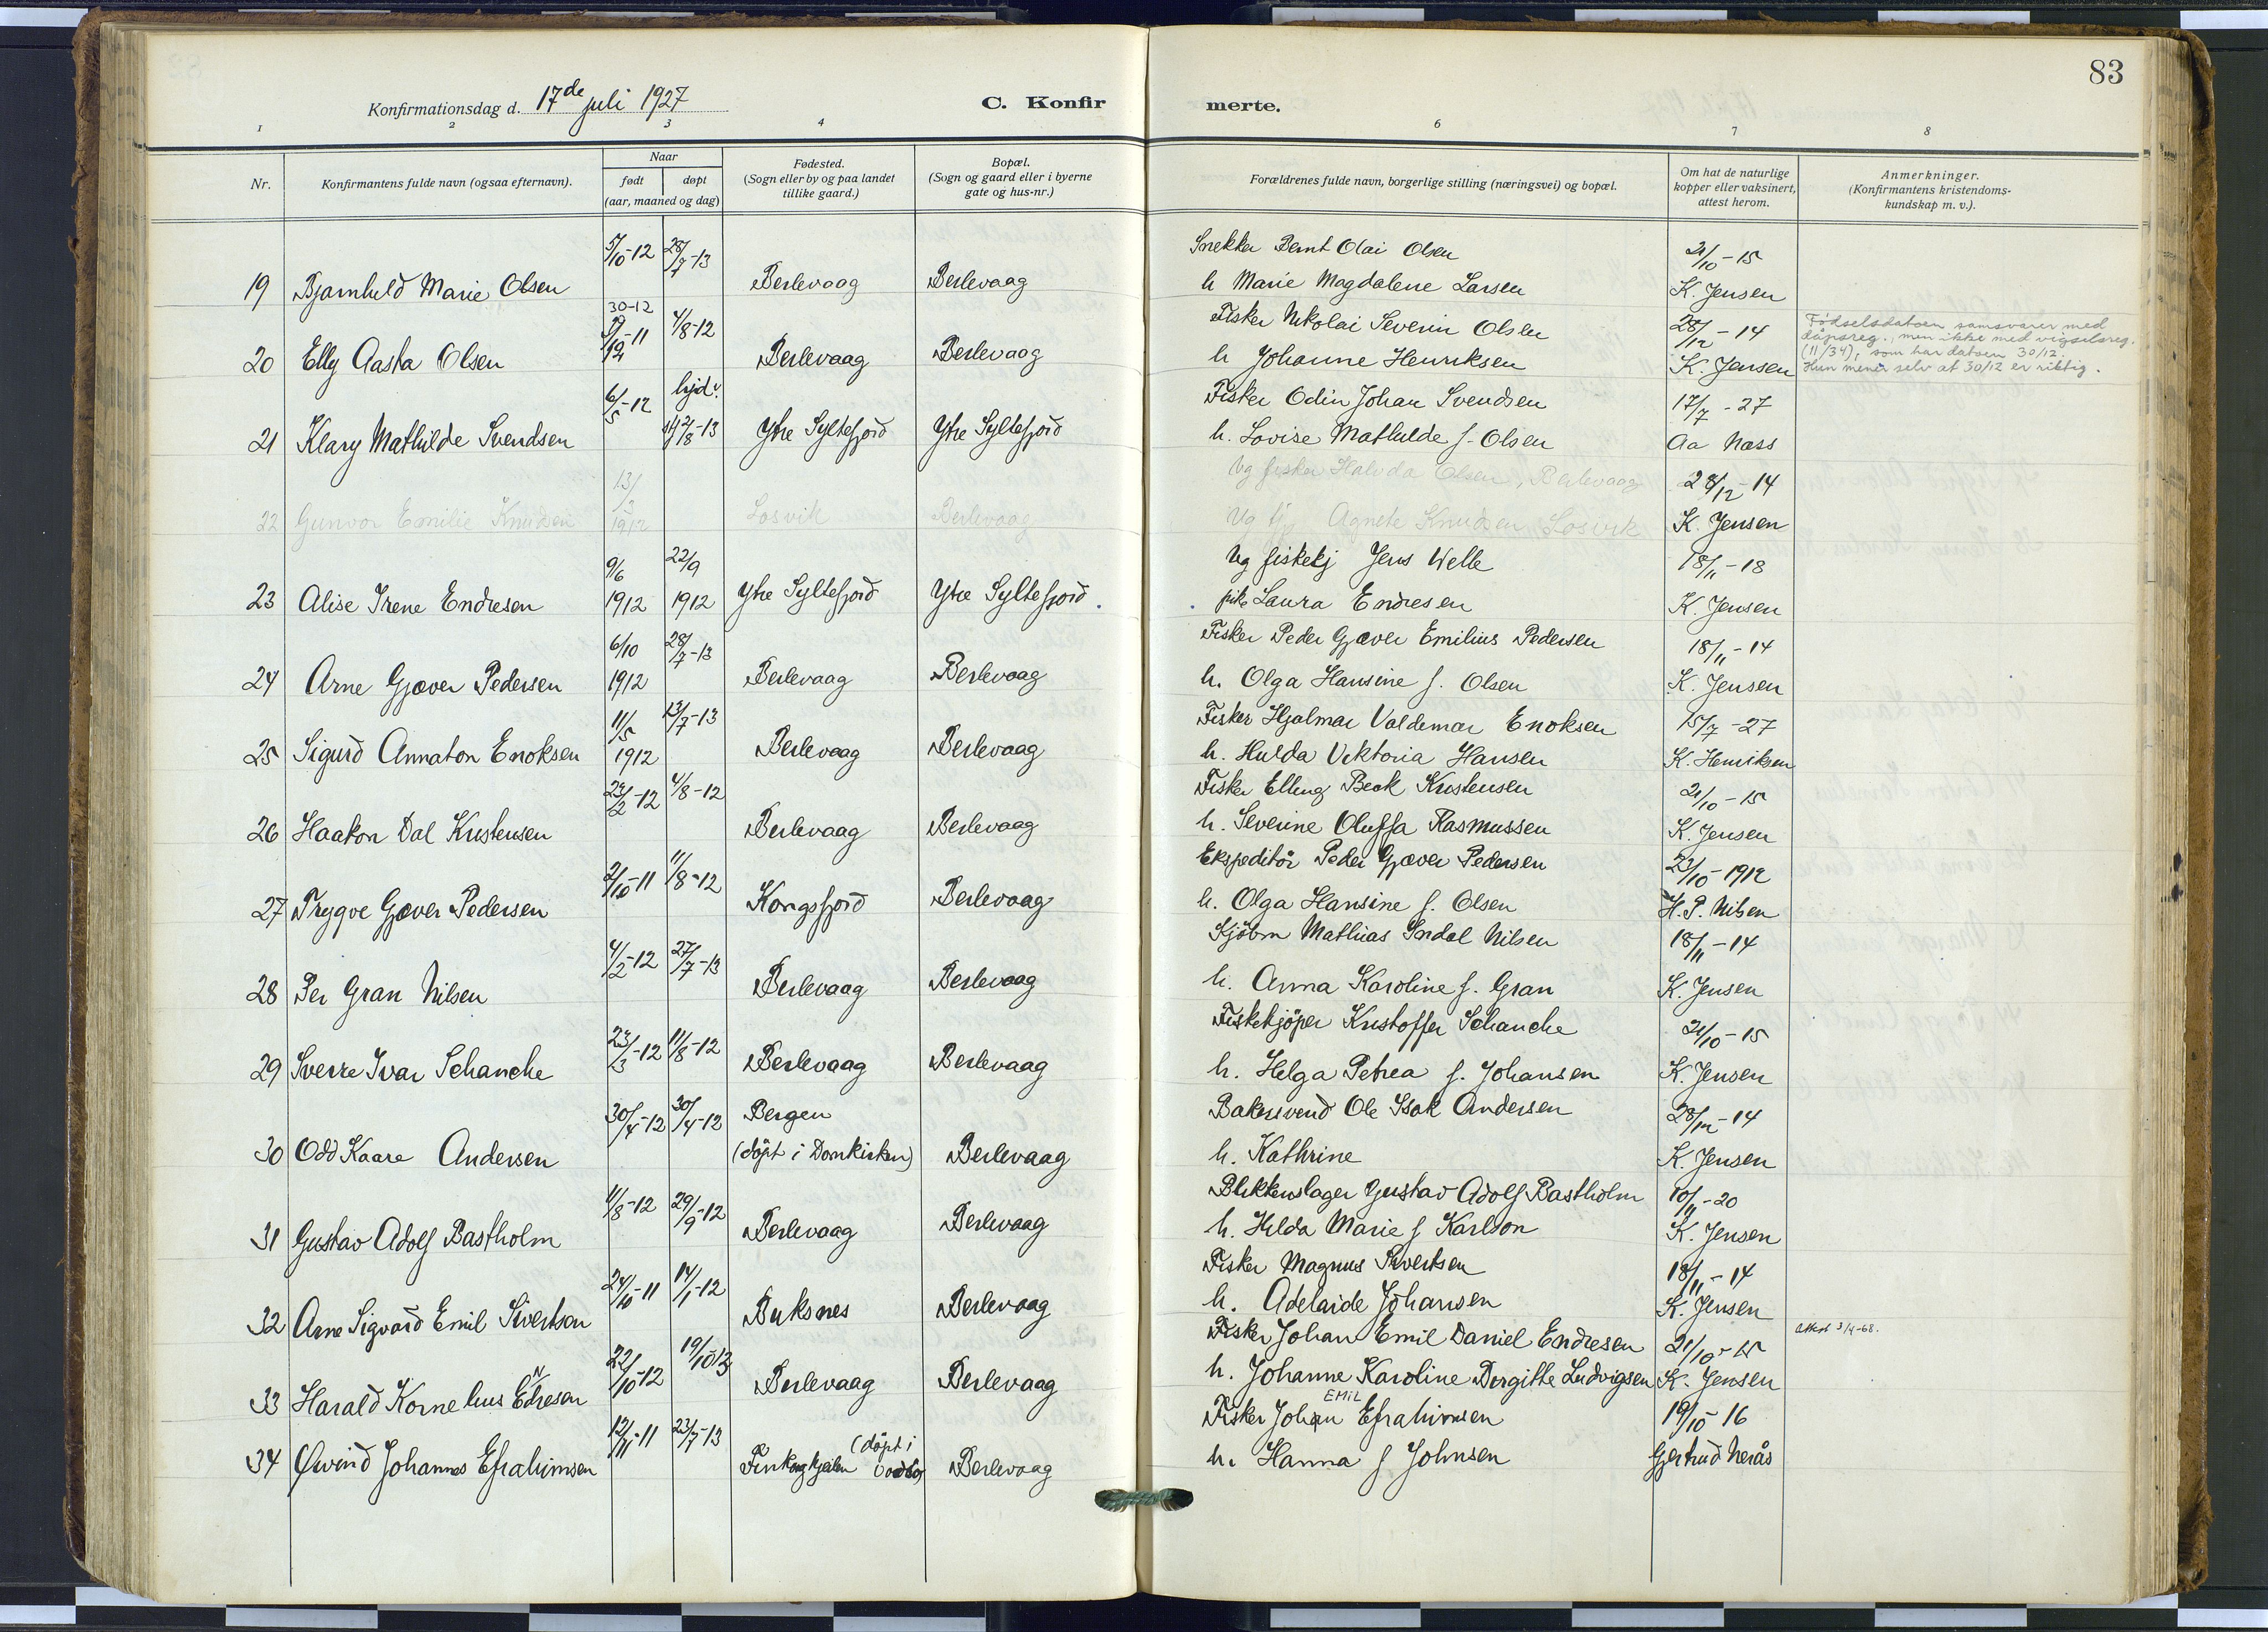 83
Konfirmationsdag d. 17de juli 1927
C. Konfirmerte.
1 2 3 4 6 7 8
Nr.
Konfirmantens fulde navn (ogsaa efternavn).
Naar
født døpt
(aar, maaned og dag)
Fødested.
(Sogn eller by og paa landet
tillike gaard.)
Bopæl.
(Sogn og gaard eller i byerne
gate og hus-nr.)
Forældrenes fulde navn, borgerlige stilling (næringsvei) og bopæl.
Om hat de naturlige
kopper eller vaksinert,
attest herom.
Anmerkninger.
(Konfirmantens kristendoms-
kundskap m. v.).
5/10-12 28/7-13 Snekker Bernt Olai Olsen 21/10-15
19 Bjarnhild Marie Olsen Berlevaag Berlevaag h Marie Magdalene Larsen K. Jensen
30-12
4/8-12 Fisker Nikolai Severin Olsen 28/12-14
20 Elly Aasta Olsen Berlevaag Berlevaag h Johanne Henriksen K. Jensen
Fødselsdatoen samsvarer med
dåpsreg., men ikke med vigselsreg.
(11/34), som har datoen 30/12.
Hun mener selv at 30/12 er riktig.
6/5-12 hjd. Fisker Odin Johan Svendsen 17/7-27
21 Klary Mathilde Svendsen Ytre Syltefjord Ytre Syltefjord h. Lovise Mathilde f. Olsen Aa Næss
13/3 Ug fisker Halvda Olsen, Berlevaag 28/12-14
22 Gunvor Emilie Knudsen 1912 Losvik Berlevaag Ug tj Agnete Knudsen, Losvik K. Jensen
9/6 22/9 Ug fiskekj Jens Welle 18/11-18
23 Alise Irene Endresen 1912 1912 Ytre Syltefjord Ytre Syltefjord. pike Laura Endresen K. Jensen
6/10 28/7-13 Fisker Peder Gjæver Emilius Pedersen 18/11-14
24 Arne Gjæver Pedersen 1912 Berlevaag Berlevaag h. Olga Hansine f. Olsen K. Jensen
11/5 13/7-13 Fisker Hjalmar Valdemar Enoksen 15/7-27
25 Sigurd Annaton Enoksen 1912 Berlevaag Berlevaag h. Hulda Viktoria Hansen K. Henriksen
4/8-12 Fisker Elling Beck Kristensen 21/10-15
26 Haakon Dal Kristensen Berlevaag Berlevaag h. Severine Oluffa Rasmussen K. Jensen
2/10-11 11/8-12 Ekspeditör Peder Gjæver Pedersen 23/10-1912
27 Trygve Gjæver Pedersen Kongsfjord Berlevaag h. Olga Hansine f. Olsen H. P. Nilsen
4/2-12 27/7-13 Kjöbm Mathias Indal Nilsen 18/11-14
28 Per Gran Nilsen Berlevaag Berlevaag h. Anna Karoline f. Gran K. Jensen
23/3-12 11/8-12 Fiskekjöper Kristoffer Schanche 21/10-15
29 Sverre Ivar Schanche Berlevaag Berlevaag h. Helga Petrea f. Johansen K. Jensen
30/4-12 30/4-12 Bergen Bakersvend Ole Isak Andersen 28/12-14
30 Odd Kaare Andersen (döpt i Domkirken) Berlevaag h. Kathrine K. Jensen
11/8-12 29/9-12 Blikkenslager Gustav Adolf Bastholm 10/11-20
31 Gustav Adolf Bastholm Berlevaag Berlevaag h. Hilda Marie f Karlson K. Jensen
24/10-11 14/1-12 Fisker Magnus Sivertsen 18/11-14
32 Arne Sigvard Emil Sivertsen Buksnes Berlevaag h. Adelaide Johansen K. Jensen
22/10-12 19/10 13 Fisker Johan Emil Daniel Endresen 21/10-15 Attest 3/4-68.
33 Harald Kornelius Endresen Berlevaag Berlevaag h. Johanne Karoline Bergitte Ludvigsen K. Jensen
12/11-11 23/7-13 Fisker Johan EMIL Efrahimsen 19/10-16
34 Øivind Johannes Efrahimsen (döpt i Vadsø) Berlevaag h. Hanna f Johnsen Gjertrud Nerås